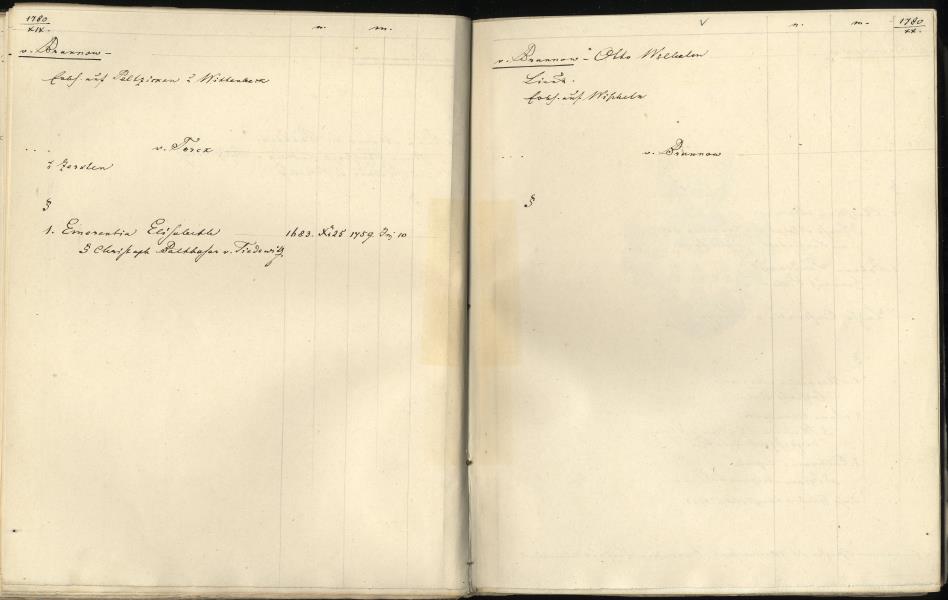 1780
XIX.
n.
m.
v. Brunnow –
Erbh. auf Peltzirren & Wittenbeck
. . . v. Torck
& Zerxten
§
1. Emerentia Elisabeth 1683. Xr 25 1759. Jnj 10
§ Christoph Balthasar v. Tiedewitz
V
n.
m.
1780
XX.
v. Brunnow – Otto Wilhelm
Lieut.
Erbh. auf Wischeln
. . . v. Brunnow
§